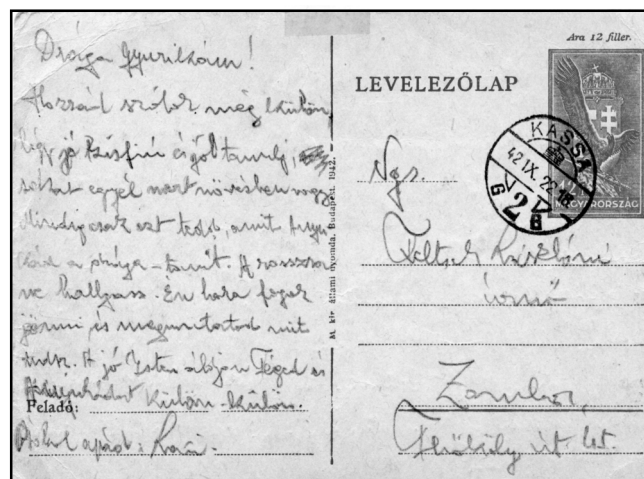 Drága Gyurikám!
Hozzád szólok még külön,
légy jó kisfiú és jól tanulj,
sokat egyél mert növésben vagy
Mindig csak azt tedd, amit
a drága tanít. A rosszra
ne hallgass. Én haza fogok
jönni és megmutatod mit
tudsz. A jó Isten áldjon Téged és
külön-külön.
Feladó:
apád:
M. kir. állami nyomda, Budapest. 1942.
Ára 12 fillér.
LEVELEZŐLAP
MAGYARORSZÁG
KASSA
42 IX. 22
G 2 B
Ngs.
Miklósné
úrnő
Zombor
Thököly út